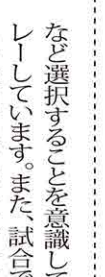 など選択することを意識して
レーしています。また、試合で